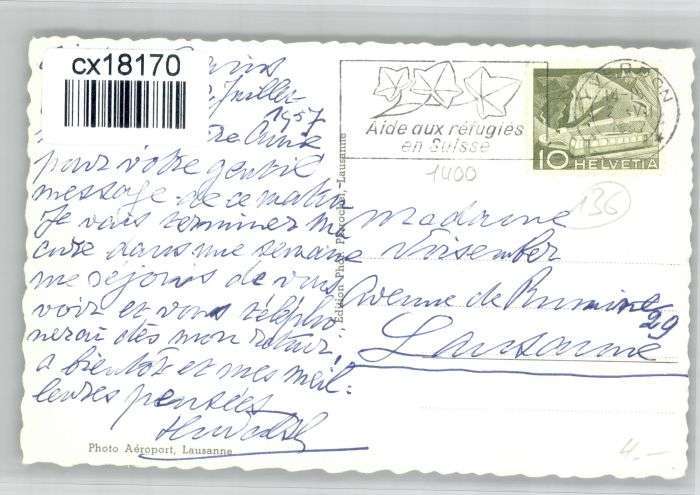 cx18170
juillet
1957
pour votre gentil
message de ce matin
Je vais terminer ma
cure dans une semaine
me réjouis de vous
voir et vous télépho
nerai dès mon retour,
a bientôt et mes meil:
leures pensées
Photo Aéroport, Lausanne
Edition Photo Lausanne
Aide aux réfugiés
en Suisse
10 HELVETIA
1400
136
Madame
Voisember
Avenue de Rumine
29
Lausanne
4.-